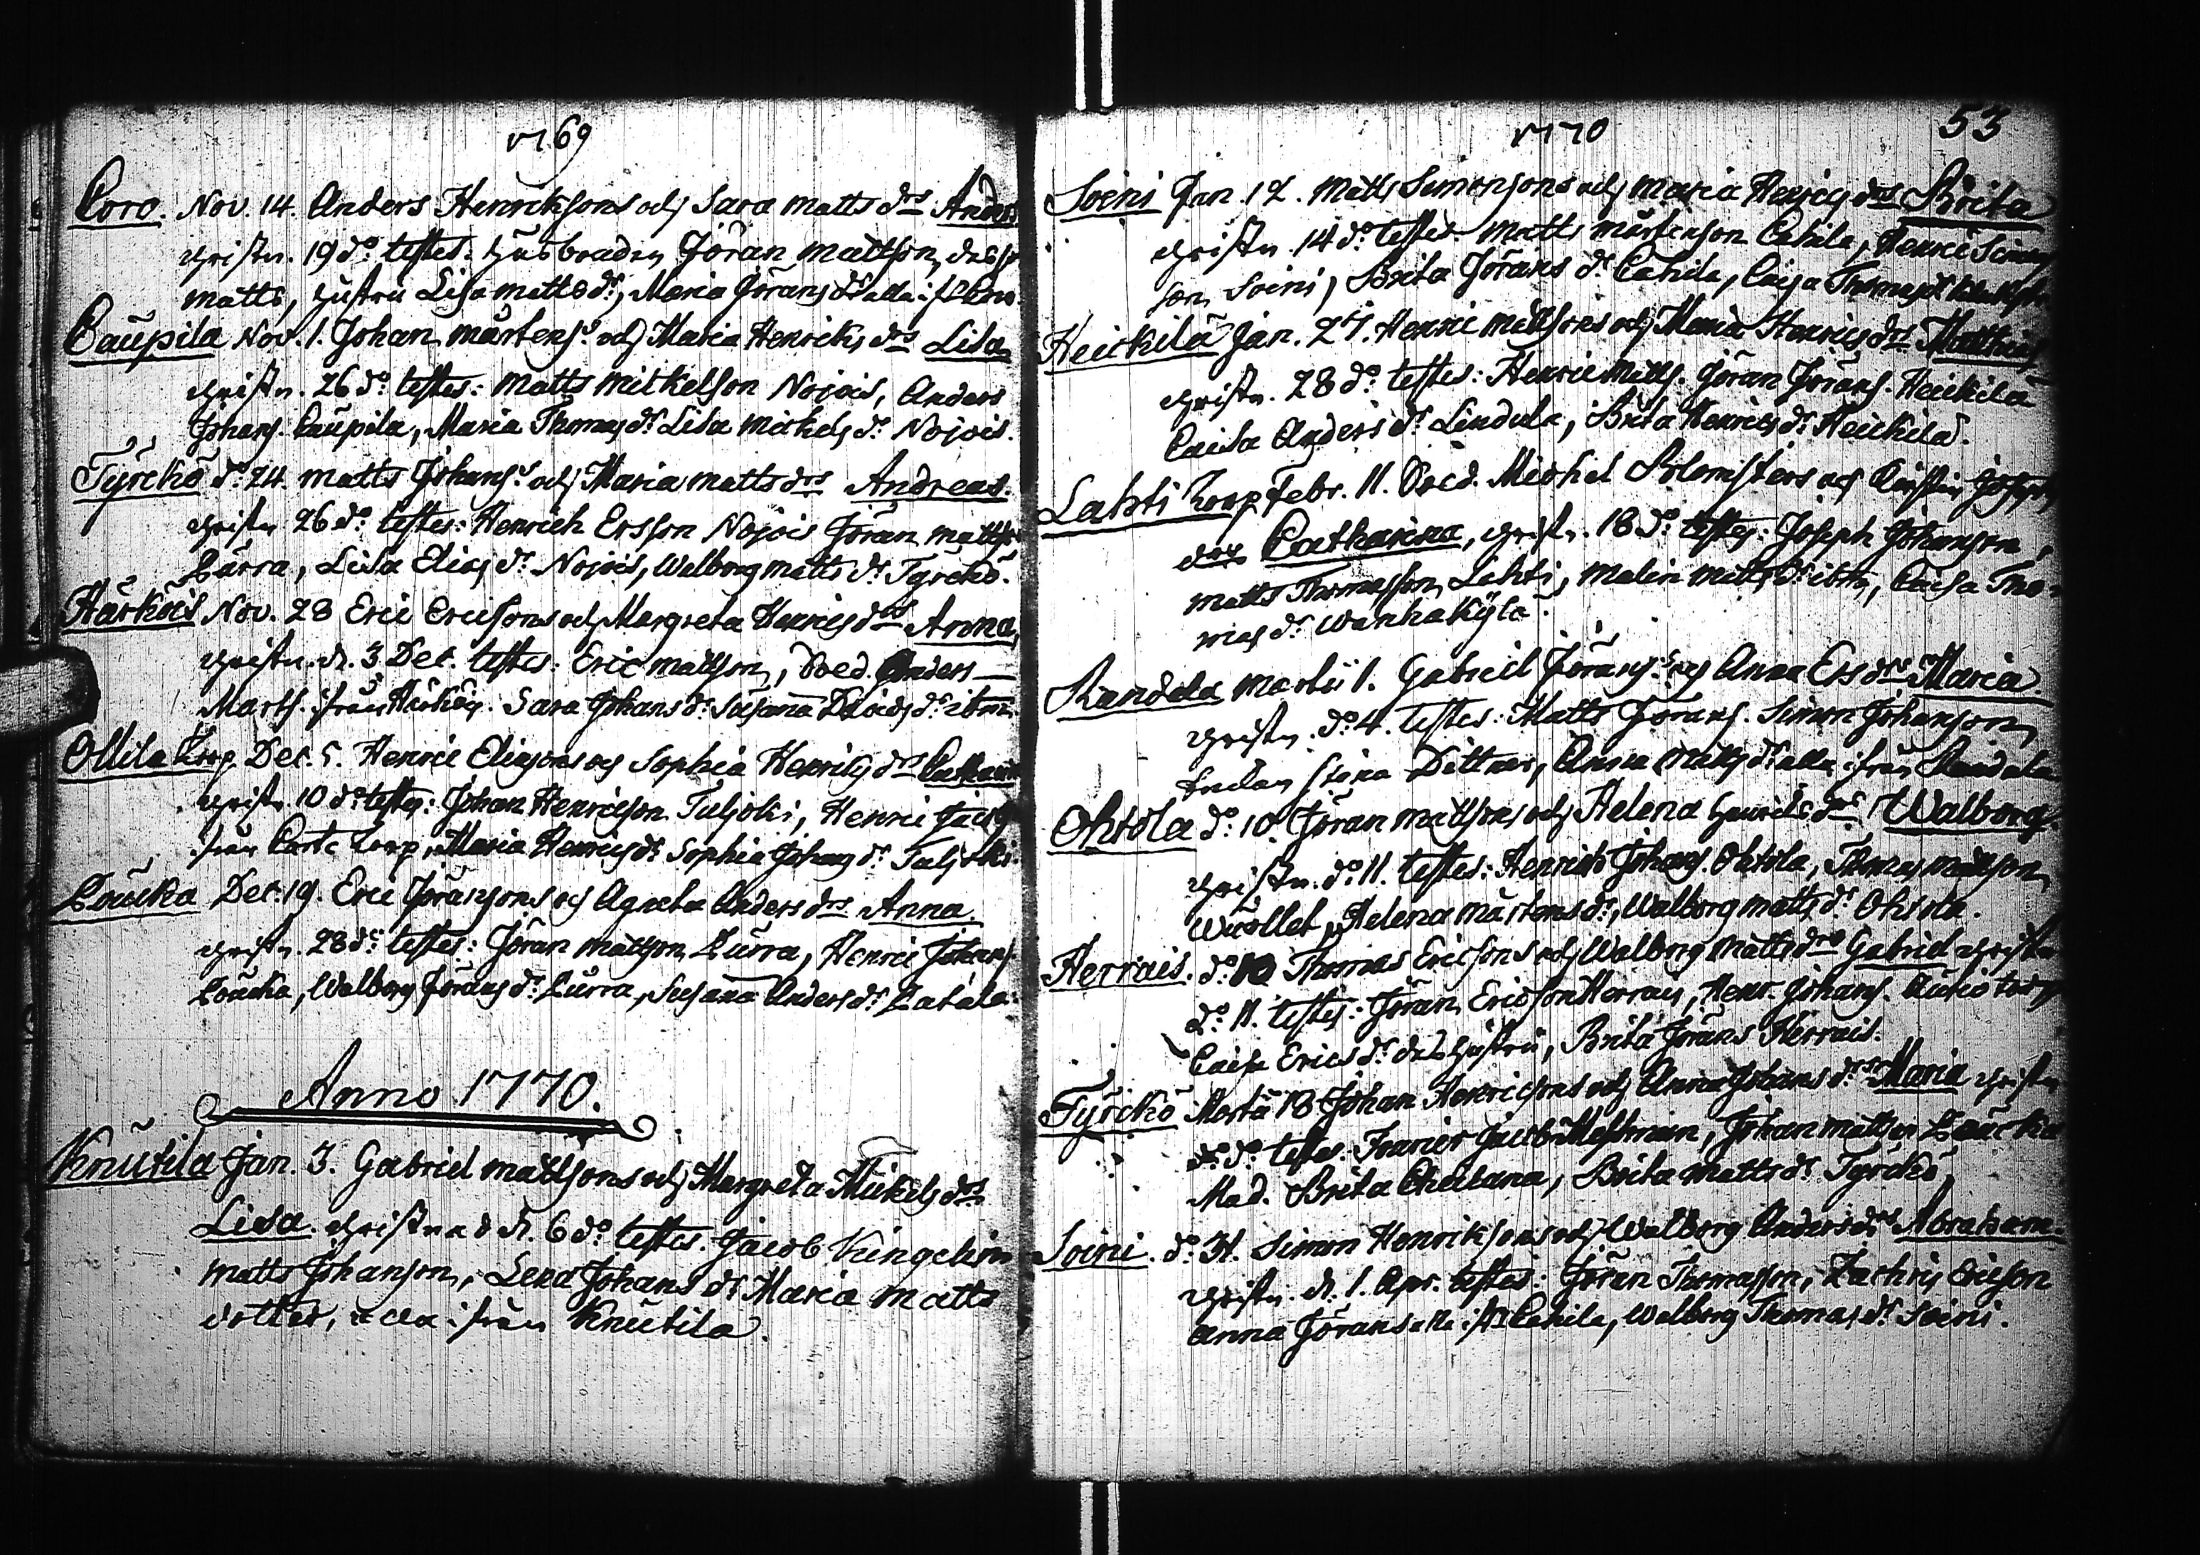 1769
Coro. Nov. 14. Anders Henriksons och Sara Matts drs Anders
christn. 19 do. testes: husbonden Jöran Mattson, dess
Matts, hustru Lisa Matts dr, Maria Jörans dr alla ifr. Coro.
Caupila Nov. 1. Johan Mårtens. och Maria Henriks drs Lisa
christn. 26 do. testes: Matts Mickelson Nojois, Anders
Johans. Caupila, Maria Thomas dr Lisa Mickels dr. Nojois.
Tyrckö do. 24. Matts Johans. och Maria Matts drs Andreas.
christn 26 do. testes: Henrich Ersson Nojois Jöran Matts
Lurra, Lisa Elias dr. Nojois, Walborg Matts dr Tyrckö.
Härköis Nov. 28 Eric Ericsons och Margreta Henrics drs Anna,
christn. d. 3 Dec. testes: Eric Mattson, Sold. Anders
Sara Johans dr. Susana Davids dr. ibm.
Ollila Torp. Dec. 5. Henric Eliasons och Sophia Henriks drs
christn. 10 do testes: Johan Henricson Tuljoki, Henric
från Torp, Maria Henrics dr. Sophia Johans dr. Tuljoki
Loucko Dec. 19. Eric Jöransons och Agneta Anders drs Anna.
christn. 28 do. testes: Jöran Mattson Lurra, Henric Johans.
Loucko, Walborg Jörans dr. Lurra, Susana Anders dr.
Anno 1770.
Knutila Jan. 3. Gabriel Mattsons och Margreta Mickels drs
Lisa. christnad d. 6 do testes. Jacob
Matts Johanson, Lena Johans dr Maria Matts
dotter, alla ifrån Knutila.
1770 53
Soini Jan. 12. Matts Simonsons och Maria Henrics drs Brita
christn. 14 do. testes. Matts Mårtenson Cahila, Henric Simon
son Soini, Brita Jörans dr Cahila, Caisa
Heickilä Jan. 27. Henric Mattsons och Maria Henrics drs
christn. 28 do. testes: Henric Matts. Jöran Jörans. Heickilä
Caisa Anders dr. Lindula, Brita Henrics dr. Heickilä.
Lahti Torp Febr. 11. Sold. Michel Blomsters och Kirstin Josephs
drs Catharina, christn. 18 do. testes: Joseph Johanson,
Matts Thomasson Lahti, Malin Matts dr. ibm, Caisa Tho-
mas dr. Wanhakylä.
Randala Martii 1. Gabriel Jörans. och Anna Ers drs Maria.
christn. do. 4. testes: Matts Jörans. Simon Johanson,
Stina Dittmar, Anna dr alla ifrån Randala
Ohtola do. 10. Jöran Mattsons och Helena Henriks drs Walborg.
christn. do. 11. testes: Henrich Johans. Ohtola, Thomas Mattson
Wuollet, Helena Mårtens dr, Walborg Matts dr. Ohtola.
Herrais. do. 10 Thomas Ericsons och Walborg Matts drs Gabriel christn
do. 11. testes: Jöran Ericson Herrais, Henr. Johans.
Caisa Erics dr. dess hustru, Brita Jörans Herrais.
Tyrckö Martii 18 Johan Henricsons och Anna Johans drs Maria christn
do. do. testes: Jacob Johan Mattson Loucko
Mad. Brita Matts dr. Tyrckö
Soini. do. 31. Simon Henriksons och Walborg Anders drs Abraham.
christn. d. 1. Apr. testes: Jöran Thomasson, Zachris Ericson
Anna Jörans alla ifr. Cahila, Walborg Thomas dr. Soini.